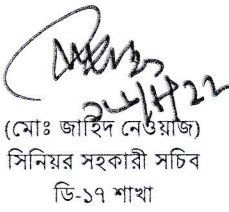 (মোঃ জাহিদ নেওয়াজ)
সিনিয়র সহকারী সচিব
ডি-১৭ শাখা